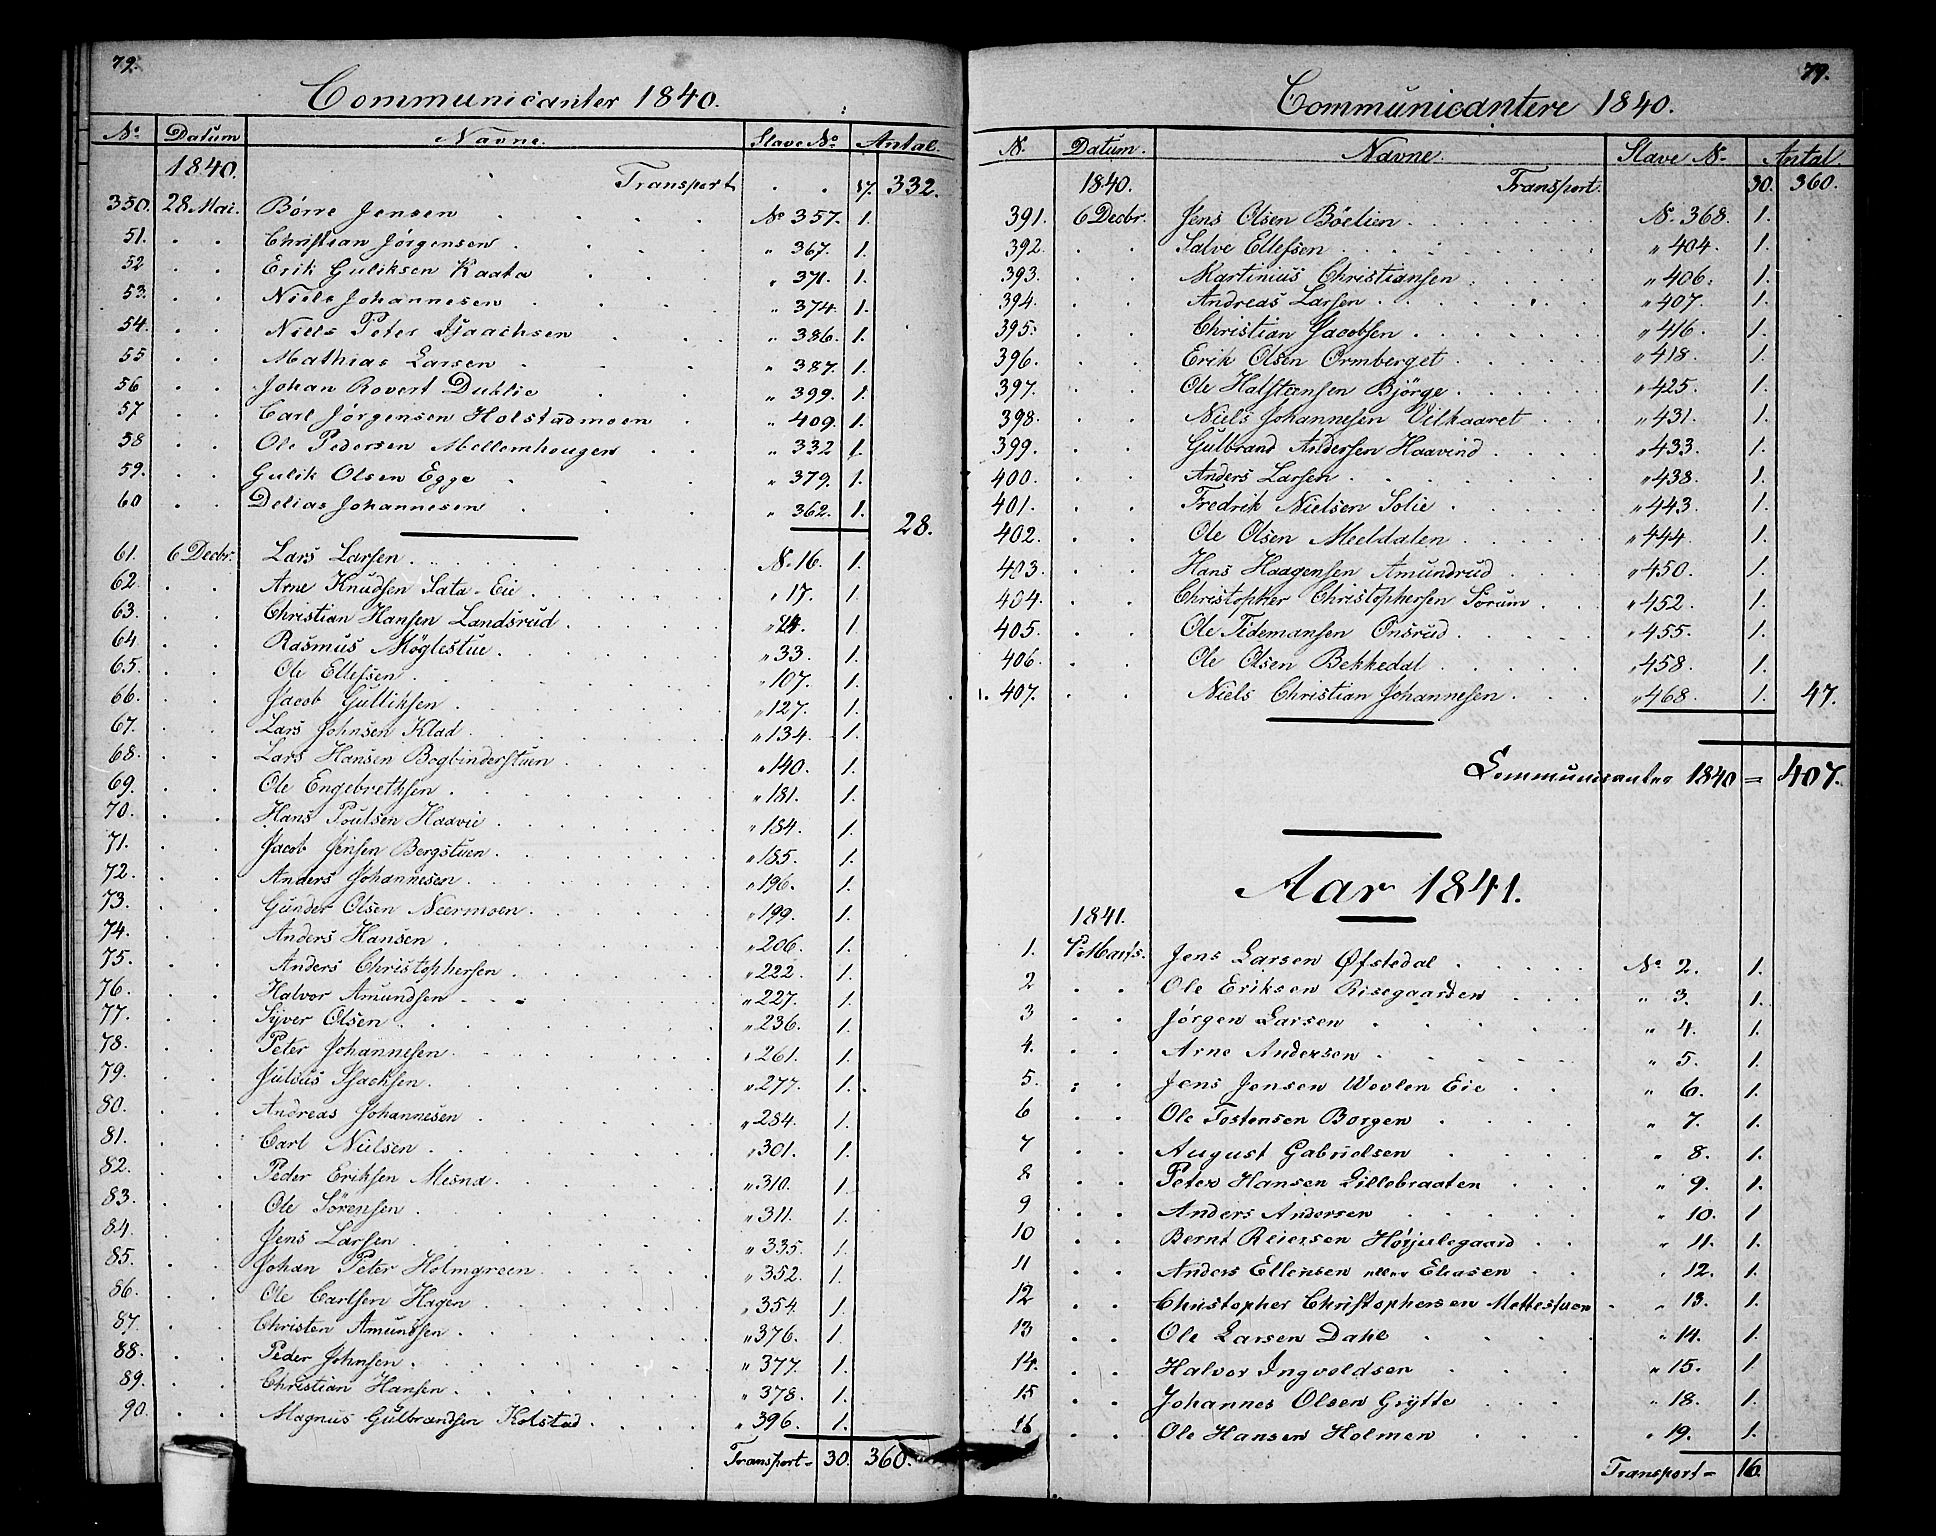 79.
Communicanter 1840.
No. Datum Navne. Slave No. Antal.
1840. Transport . . 17. 332.
350. 28 Mai. Börre Jensen No 357. 1.
51. . . Christian Jørgensen " 367. 1.
52 . . Erik Guliksen Kaata " 371. 1.
53. . . Niels Johannesen " 374. 1.
54. . . Niels Peter Isaachsen " 386. 1.
55 . . Mathias Larsen " 387. 1.
56 . . Johan Rovert Dublie " 399. 1.
57 . . Carl Jørgensen Holstadmoen " 409. 1.
58 . . Ole Pedersen Mellemhougen " 332 1.
59. . . Gulik Olsen Egge " 379. 1.
60 . . Delias Johannesen " 362. 1. 28.
61. 6 Decbr. Lars Larsen N. 16. 1.
62. . . Arne Knudsen Sata-Eie " 17. 1.
63. . . Christian Hansen Landsrud " 24. 1.
64. . . Rasmus Möglestue " 33. 1.
65. . . Ole Ellefsen " 107. 1.
66. . . Jacob Gulliksen " 127. 1.
67. . . Lars Johnsen Klad " 134. 1.
68. . . Lars Hansen Bogbinderstuen " 140. 1.
69. . . Ole Engebrethsen " 181. 1.
70. . . Hans Poulsen Haavie " 184. 1.
71. . . Jacob Jensen Bergstuen " 185. 1.
72. . . Anders Johannesen " 196. 1.
73. . . Gunder Olsen Neermoen " 199. 1.
74. . . Anders Hansen " 206. 1.
75. . . Anders Christophersen " 222. 1.
76. . . Halvor Amundsen " 227. 1.
77. . . Syver Olsen " 236. 1.
78. . . Peter Johannesen " 261. 1.
79. . . Julius Isachsen " 277. 1.
80. . . Andreas Johannesen " 284. 1.
81. . . Carl Nielsen " 301. 1.
82. . . Peder Eriksen Mesna " 310. 1.
83. . . Ole Sörensen " 311. 1.
84. . . Jens Larsen " 335. 1.
85. . . Johan Peter Holmgreen " 352. 1.
86. . . Ole Carlsen Hagen " 354. 1.
87. . . Christen Amundsen " 376. 1.
88. . . Peder Johnsen " 377. 1.
89. . . Christian Hansen " 378. 1.
90. . . Magnus Gulbrandsen Kolstad " 396. 1.
Transport- 30. 360.
79.
Communicantere 1840.
N. Datum. Navne. Slave N. Antal.
1840. Transport. 30. 360.
391. 6 Decbr. Jens Olsen Böelien N. 368. 1.
392. . . Salve Ellefsen " 404. 1.
393. . . Martinius Christiansen " 406. 1.
394. . . Andreas Larsen " 407. 1.
395. . . Christian Jacobsen " 416. 1.
396. . . Erik Olsen Ormberget " 418. 1.
397. . . Ole Halstensen Bjørge " 425. 1.
398. . . Niels Johannesen Vilkaaret " 431. 1.
399. . . Gulbrand Andersen Haavind " 433. 1.
400. . . Anders Larsen " 438. 1.
401. . . Fredrik Nielsen Solie " 443. 1.
402. . . Ole Olsen Meeldalen " 444. 1.
403. . . Hans Haagensen Amundrud " 450. 1.
404. . . Christopher Christophersen Sörum " 452. 1.
405. . . Ole Tidemansen Onsrud " 455. 1.
406. . . Ole Olsen Bekkedal " 458. 1.
407. . . Niels Christian Johannesen " 468. 1. 47.
Communicanter 1840 = 407.
Aar 1841.
1841.
1. Marts. Jens Larsen Øfstedal No. 2. 1.
2 . . Ole Eriksen Risegaarden " 3. 1.
3 . . Jörgen Larsen " 4. 1.
4. . . Arne Andersen " 5. 1.
5. . . Jens Jensen Wevlen Eie " 6. 1.
6 . . Ole Tostensen Borgen " 7. 1.
7 . . August Gabrielsen " 8. 1.
8 . . Peter Hansen Lillebraaten " 9. 1.
9 . . Anders Andersen " 10. 1
10 . . Bernt Reiersen Hörjulegaard " 11. 1.
11 . . Anders Ellensen eller Eliasen " 12. 1.
12 . . Christopher Christophersen Mettestuen " 13. 1.
13 . . Ole Larsen Dahl " 14. 1.
14. . . Halvor Ingvoldsen " 15. 1.
15 . . Johannes Olsen Grytte " 18. 1.
16 . . Ole Hansen Holmen " 19. 1.
Transport- 16.